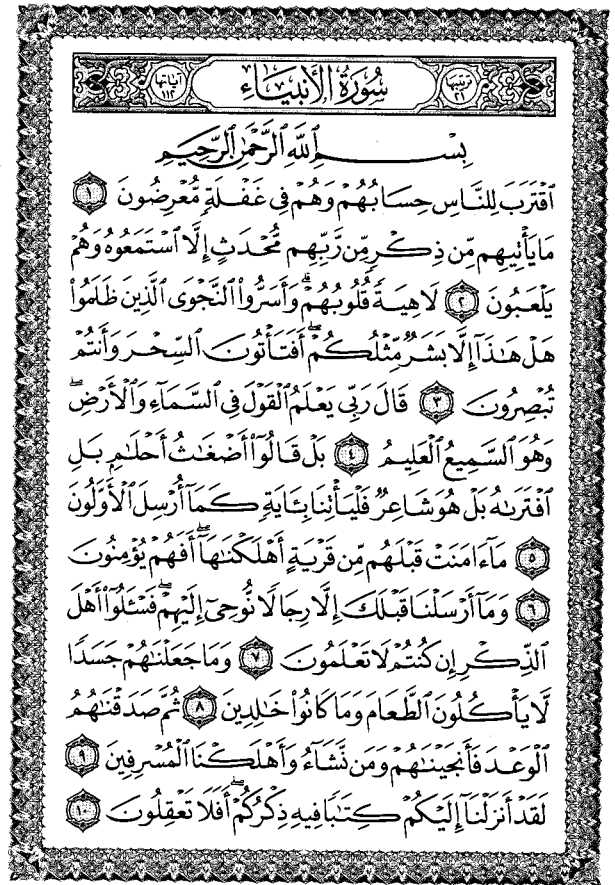 ترتيبها ٢١ سُورَةُ الأَنبِيَاءِ آياتها ١١٢
بِسْمِ ٱللَّهِ ٱلرَّحْمَٰنِ ٱلرَّحِيمِ
ٱقْتَرَبَ لِلنَّاسِ حِسَابُهُمْ وَهُمْ فِى غَفْلَةٍ مُّعْرِضُونَ ١
مَا يَأْتِيهِم مِّن ذِكْرٍ مِّن رَّبِّهِم مُّحْدَثٍ إِلَّا ٱسْتَمَعُوهُ وَهُمْ
يَلْعَبُونَ ٢ لَاهِيَةً قُلُوبُهُمْ ۗ وَأَسَرُّوا۟ ٱلنَّجْوَى ٱلَّذِينَ ظَلَمُوا۟
هَلْ هَٰذَآ إِلَّا بَشَرٌ مِّثْلُكُمْ ۖ أَفَتَأْتُونَ ٱلسِّحْرَ وَأَنتُمْ
تُبْصِرُونَ ٣ قَالَ رَبِّى يَعْلَمُ ٱلْقَوْلَ فِى ٱلسَّمَآءِ وَٱلْأَرْضِ ۖ
وَهُوَ ٱلسَّمِيعُ ٱلْعَلِيمُ ٤ بَلْ قَالُوٓا۟ أَضْغَٰثُ أَحْلَٰمٍۭ بَلِ
ٱفْتَرَىٰهُ بَلْ هُوَ شَاعِرٌ فَلْيَأْتِنَا بِـَٔايَةٍ كَمَآ أُرْسِلَ ٱلْأَوَّلُونَ
٥ مَآ ءَامَنَتْ قَبْلَهُم مِّن قَرْيَةٍ أَهْلَكْنَٰهَآ ۖ أَفَهُمْ يُؤْمِنُونَ
٦ وَمَآ أَرْسَلْنَا قَبْلَكَ إِلَّا رِجَالًا نُّوحِىٓ إِلَيْهِمْ ۖ فَسْـَٔلُوٓا۟ أَهْلَ
ٱلذِّكْرِ إِن كُنتُمْ لَا تَعْلَمُونَ ٧ وَمَا جَعَلْنَٰهُمْ جَسَدًا
لَّا يَأْكُلُونَ ٱلطَّعَامَ وَمَا كَانُوا۟ خَٰلِدِينَ ٨ ثُمَّ صَدَقْنَٰهُمُ
ٱلْوَعْدَ فَأَنجَيْنَٰهُمْ وَمَن نَّشَآءُ وَأَهْلَكْنَا ٱلْمُسْرِفِينَ ٩
لَقَدْ أَنزَلْنَآ إِلَيْكُمْ كِتَٰبًا فِيهِ ذِكْرُكُمْ ۖ أَفَلَا تَعْقِلُونَ ١٠